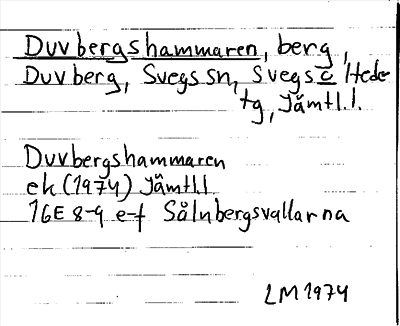 Duvbergshammaren, berg,
Duvberg, Svegs sn, Svegs o Hede
tg, Jämtl.l.
Duvbergshammaren
ek (1974) Jämtl.l
16E 8-9 e-f Sålnbergsvallarna
LM 1974